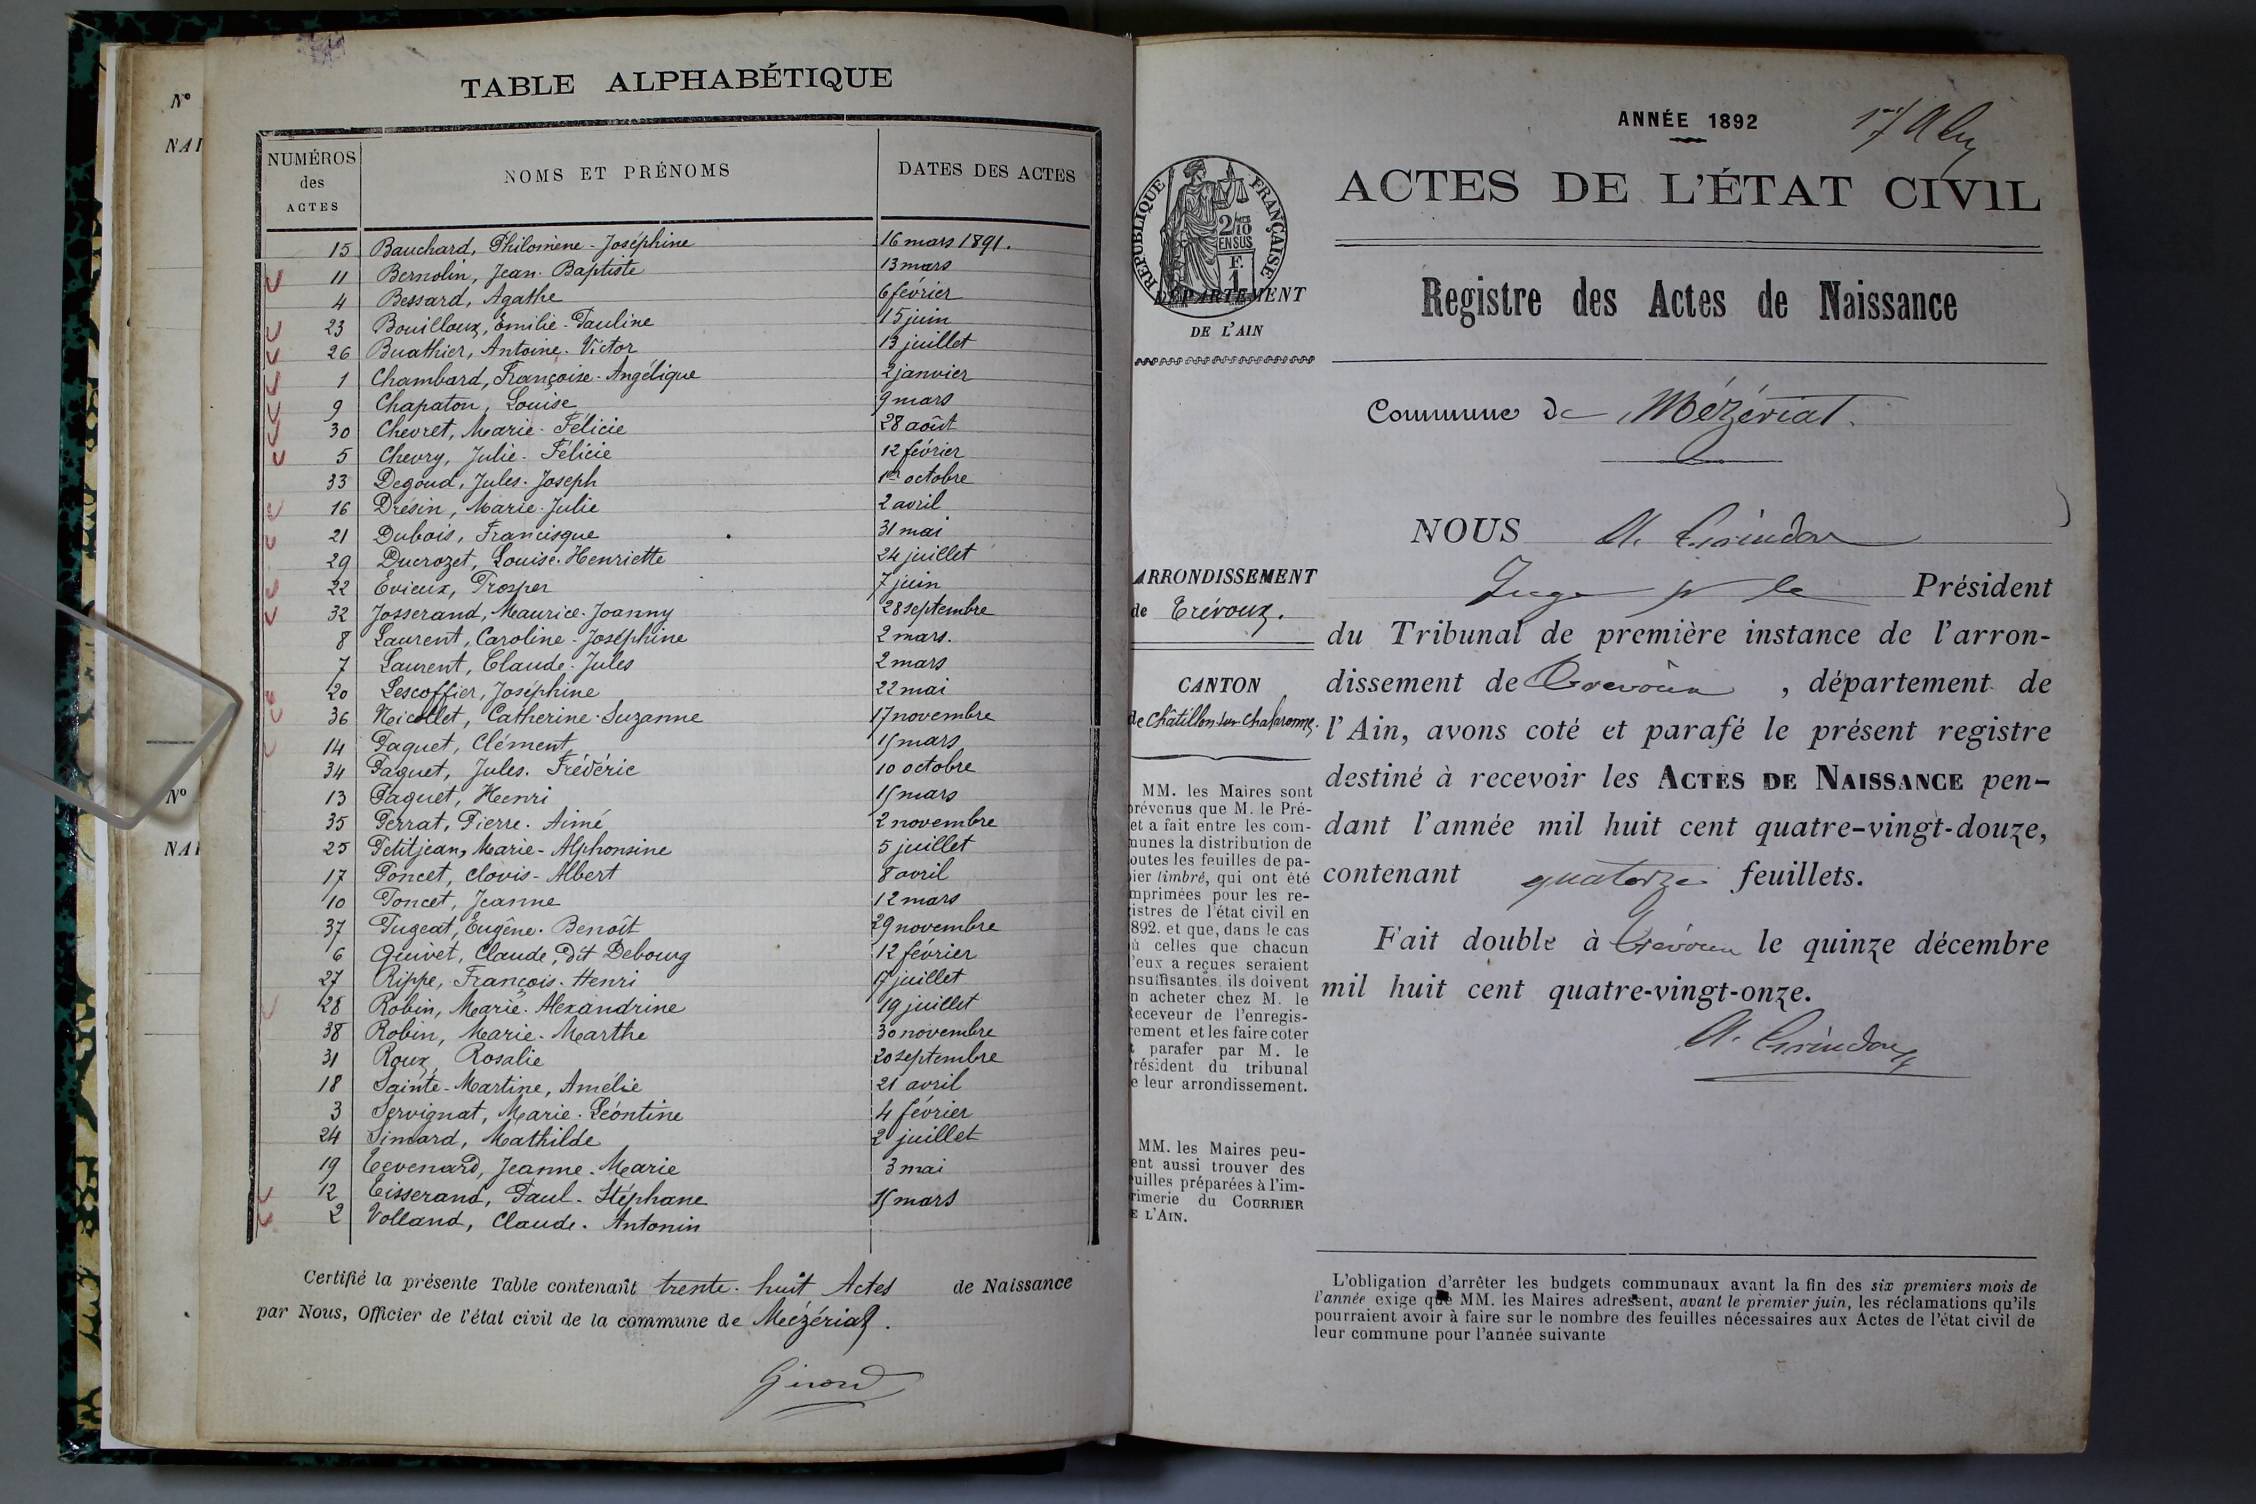 N°
NAI
N°
NAI
TABLE ALPHABÉTIQUE
NUMÉROS des ACTES | NOMS ET PRÉNOMS | DATES DES ACTES
15 Bauchard, Philomène-Joséphine 16 mars 1891.
11 Bernolin, Jean-Baptiste 13 mars
4 Bessard, Agathe 6 février
23 Bouilloux, Emilie-Pauline 15 juin
26 Buathier, Antoine-Victor 13 juillet
1 Chambard, Françoise-Angélique 2 janvier
9 Chapaton, Louise 9 mars
30 Chevret, Marie-Félicie 28 août
5 Chevry, Julie-Félicie 12 février
33 Degoud, Jules-Joseph 1er octobre
16 Drésin, Marie-Julie 2 avril
21 Dubois, Francisque 31 mai
29 Ducrozet, Louise-Henriette 24 juillet
22 Evieux, Prosper 7 juin
32 Josserand, Maurice-Joanny 28 septembre
8 Laurent, Caroline-Joséphine 2 mars.
7 Laurent, Claude-Jules 2 mars
20 Lescoffier, Joséphine 22 mai
36 Nicollet, Catherine-Suzanne 17 novembre
14 Paquet, Clément 15 mars
34 Paquet, Jules-Frédéric 10 octobre
13 Paquet, Henri 15 mars
35 Perrat, Pierre-Aimé 2 novembre
25 Petitjean, Marie-Alphonsine 5 juillet
17 Poncet, Clovis-Albert 8 avril
10 Poncet, Jeanne 12 mars
37 Pugeat, Eugène-Benoît 29 novembre
6 Quivet, Claude, dit Debourg 12 février
27 Rippe, François-Henri 17 juillet
28 Robin, Marie-Alexandrine 19 juillet
38 Robin, Marie-Marthe 30 novembre
31 Roux, Rosalie 20 septembre
18 Sainte-Martine, Amélie 21 avril
3 Servignat, Marie-Léontine 4 février
24 Simard, Mathilde 2 juillet
19 Tevenard, Jeanne-Marie 3 mai
12 Tisserand, Paul-Stéphane 15 mars
2 Volland, Claude-Antonin
Certifié la présente Table contenant trente-huit Actes de Naissance
par Nous, Officier de l'état civil de la commune de Mézériat.
Girard
ANNÉE 1892
ACTES DE L'ÉTAT CIVIL
RÉPUBLIQUE FRANÇAISE
2/10
EN SUS
F.
1
DÉPARTEMENT
DE L'AIN
Registre des Actes de Naissance
Commune de Mézériat.
ARRONDISSEMENT
de Trévoux.
CANTON
de Châtillon sur Chalaronne.
MM. les Maires sont
prévenus que M. le Pré-
et a fait entre les com-
munes la distribution de
outes les feuilles de pa-
pier timbré, qui ont été
mprimées pour les re-
gistres de l'état civil en
892. et que, dans le cas
ù celles que chacun
'eux a reçues seraient
nsuffisantes, ils doivent
n acheter chez M. le
Receveur de l'enregis-
rement et les faire coter
t parafer par M. le
Président du tribunal
e leur arrondissement.
MM. les Maires peu-
ent aussi trouver des
euilles préparées à l'im-
rimerie du COURRIER
E L'AIN.
NOUS
Juge pr le Président
du Tribunal de première instance de l'arron-
dissement de Trévoux, département de
l'Ain, avons coté et parafé le présent registre
destiné à recevoir les ACTES DE NAISSANCE pen-
dant l'année mil huit cent quatre-vingt-douze,
contenant quatorze feuillets.
Fait double à Trévoux le quinze décembre
mil huit cent quatre-vingt-onze.
L'obligation d'arrêter les budgets communaux avant la fin des six premiers mois de
l'année exige que MM. les Maires adressent, avant le premier juin, les réclamations qu'ils
pourraient avoir à faire sur le nombre des feuilles nécessaires aux Actes de l'état civil de
leur commune pour l'année suivante